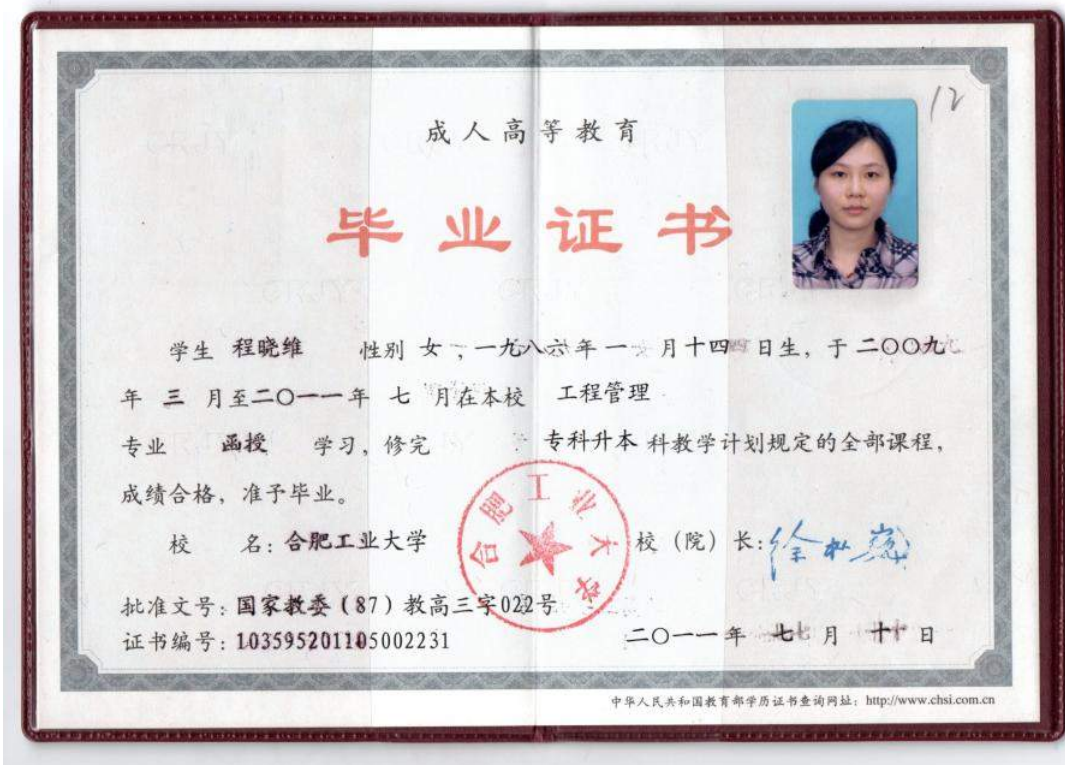 12
成人高等教育
毕业证书
学生 程晓维 性别 女，一九八六年 一 月十四 日生，于 二〇〇九
年 三 月至二〇一一年 七 月在本校 工程管理
专业 函授 学习，修完 专科升本 科教学计划规定的全部课程，
成绩合格，准予毕业。
校 名：合肥工业大学 校（院）长：
合肥工业大学
批准文号：国家教委（87）教高三字022号
证书编号：103595201105002231 二〇一一 年 七 月 十 日
中华人民共和国教育部学历证书查询网址：http://www.chsi.com.cn